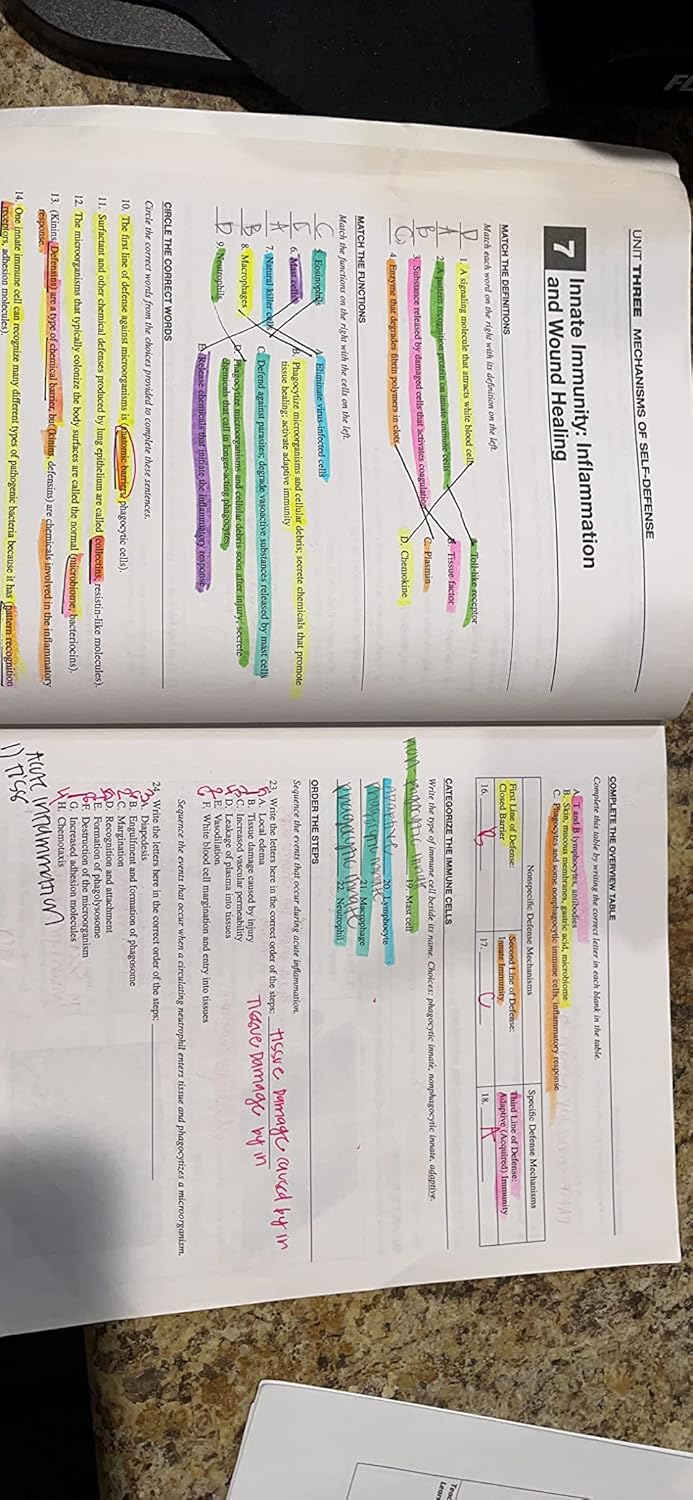 UNIT THREE MECHANISMS OF SELF-DEFENSE
7 Innate Immunity: Inflammation
and Wound Healing
MATCH THE DEFINITIONS
Match each word on the right with its definition on the left.
D 1. A signaling molecule that attracts white blood cells A. Toll-like receptor
A 2. A pattern recognition protein on innate immune cells B. Tissue factor
B 3. Substance released by damaged cells that activates coagulation C. Plasmin
C 4. Enzyme that degrades fibrin polymers in clots D. Chemokine
MATCH THE FUNCTIONS
Match the functions on the right with the cells on the left.
C 5. Eosinophils A. Eliminate virus-infected cells
E 6. Mast cells B. Phagocytize microorganisms and cellular debris; secrete chemicals that promote
tissue healing; activate adaptive immunity
7. Natural killer cells C. Defend against parasites; degrade vasoactive substances released by mast cells
B 8. Macrophages D. Phagocytize microorganisms and cellular debris soon after injury; secrete
chemicals that call in longer-acting phagocytes
D 9. Neutrophils E. Release chemicals that initiate the inflammatory response
CIRCLE THE CORRECT WORDS
Circle the correct words from the choices provided to complete these sentences.
10. The first line of defense against microorganisms is (anatomic barriers, phagocytic cells).
11. Surfactant and other chemical defenses produced by lung epithelium are called (collectins, resistin-like molecules).
12. The microorganisms that typically colonize the body surfaces are called the normal (microbiome, bacteriocins).
13. (Kinins, Defensins) are a type of chemical barrier, but (kinins, defensins) are chemicals involved in the inflammatory
response.
14. One innate immune cell can recognize many different types of pathogenic bacteria because it has (pattern recognition
receptors, adhesion molecules).
COMPLETE THE OVERVIEW TABLE
Complete this table by writing the correct letter in each blank in the table.
A. T and B lymphocytes, antibodies
B. Skin, mucous membranes, gastric acid, microbiome
C. Phagocytes and some nonphagocytic immune cells, inflammatory response
Nonspecific Defense Mechanisms Specific Defense Mechanisms
First Line of Defense: Second Line of Defense: Third Line of Defense:
Closed Barrier Innate Immunity Adaptive (Acquired) Immunity
16. B 17. C 18. A
CATEGORIZE THE IMMUNE CELLS
Write the type of immune cell beside its name. Choices: phagocytic innate, nonphagocytic innate, adaptive.
19. Mast cell
Adaptive 20. Lymphocyte
phagocytic innate 21. Macrophage
phagocytic innate 22. Neutrophil
ORDER THE STEPS
Sequence the events that occur during acute inflammation.
23. Write the letters here in the correct order of the steps: tissue damage caused by in
Tissue damage by in
A. Local edema
B. Tissue damage caused by injury
C. Increased vascular permeability
D. Leakage of plasma into tissues
E. Vasodilation
F. White blood cell margination and entry into tissues
Sequence the events that occur when a circulating neutrophil enters tissue and phagocytizes a microorganism.
24. Write the letters here in the correct order of the steps:
A. Diapedesis
B. Engulfment and formation of phagosome
C. Margination
D. Recognition and attachment
E. Formation of phagolysosome
F. Destruction of the microorganism
G. Increased adhesion molecules
H. Chemotaxis
Acute inflammation
1) Tiss